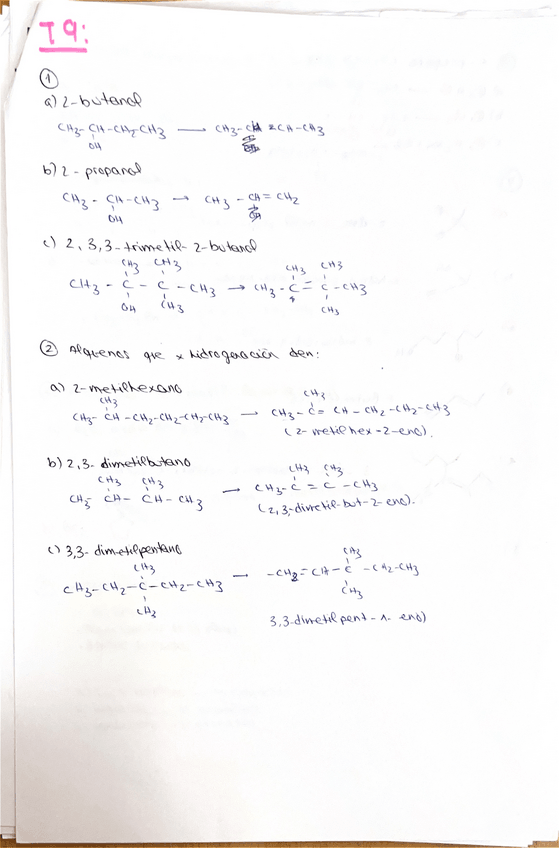 T9:
①
a) 2-butanol
CH3-CH-CH2-CH3 → CH3-CH=CH-CH3
OH
b) 2-propanol
CH3-CH-CH3 → CH3-CH=CH2
OH
c) 2,3,3-trimetil-2-butanol
CH3 CH3 CH3 CH3
CH3-C-C-CH3 → CH3-C=C-CH3
OH CH3 CH3
② Alquenos que x hidrogenación den:
a) 2-metilhexano
CH3 CH3
CH3-CH-CH2-CH2-CH2-CH3 → CH3-C=CH-CH2-CH2-CH3
(2-metilhex-2-eno).
b) 2,3-dimetilbutano
CH3 CH3 CH3 CH3
CH3-CH-CH-CH3 → CH3-C=C-CH3
(2,3-dimetil-but-2-eno).
c) 3,3-dimetilpentano
CH3 CH3
CH3-CH2-C-CH2-CH3 → -CH2=CH-C-CH2-CH3
CH3 CH3
3,3-dimetilpent-1-eno)